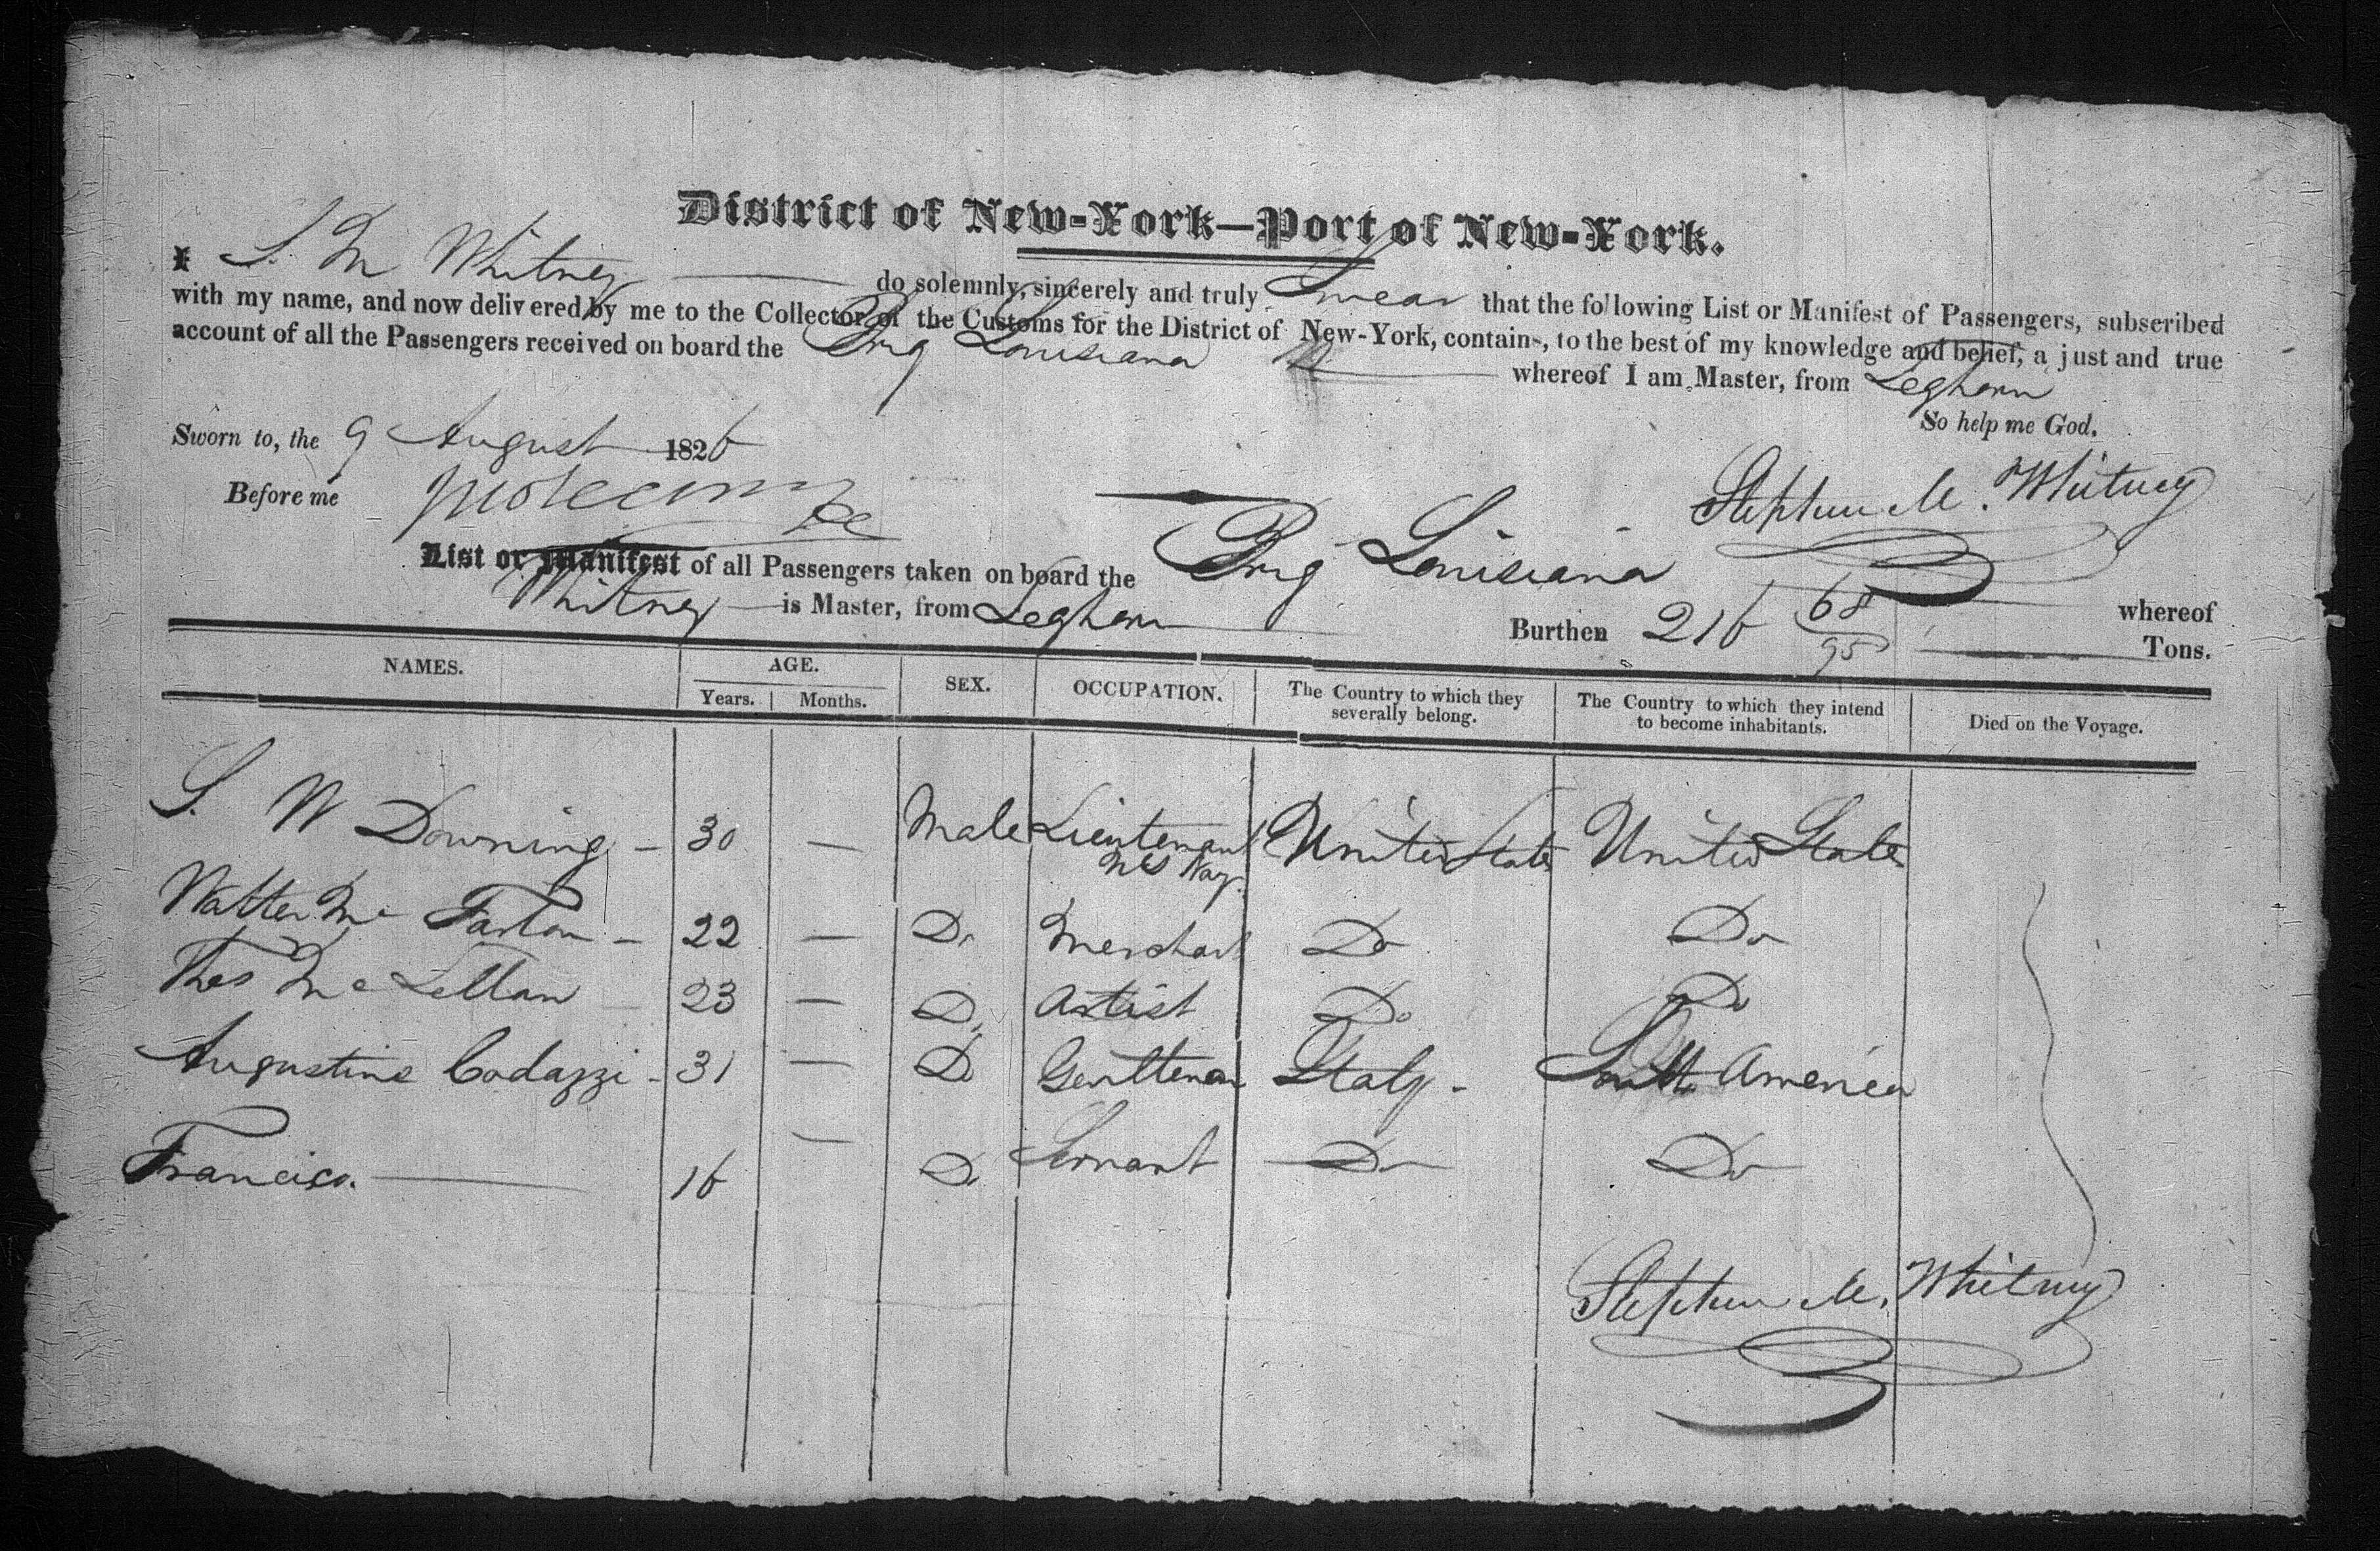 District of New-York—Port of New-York.
I S. M Whitney do solemnly, sincerely and truly Swear that the following List or Manifest of Passengers, subscribed
with my name, and now delivered by me to the Collector of the Customs for the District of New-York, contains, to the best of my knowledge and belief, a just and true
account of all the Passengers received on board the Brig Louisiana whereof I am Master, from Leghorn
So help me God.
Sworn to, the 9 August 1826
Before me
Stephen M. Whitney
List or Manifest of all Passengers taken on board the Brig Louisiana whereof
Whitney is Master, from Leghorn Burthen 216 68/95 Tons.
NAMES. AGE. SEX. OCCUPATION. The Country to which they severally belong. The Country to which they intend to become inhabitants. Died on the Voyage.
Years. Months.
S. W Downing — 30 — Male Lieutenant United States United States
22 — Do Merchant Do Do
Thos Mc Lellan 23 — Do Artist Do Do
Augustine Codazzi - 31 — Do Gentleman Italy - South America
Francisco. 16 — Do Servant Do Do
Stephen M. Whitney